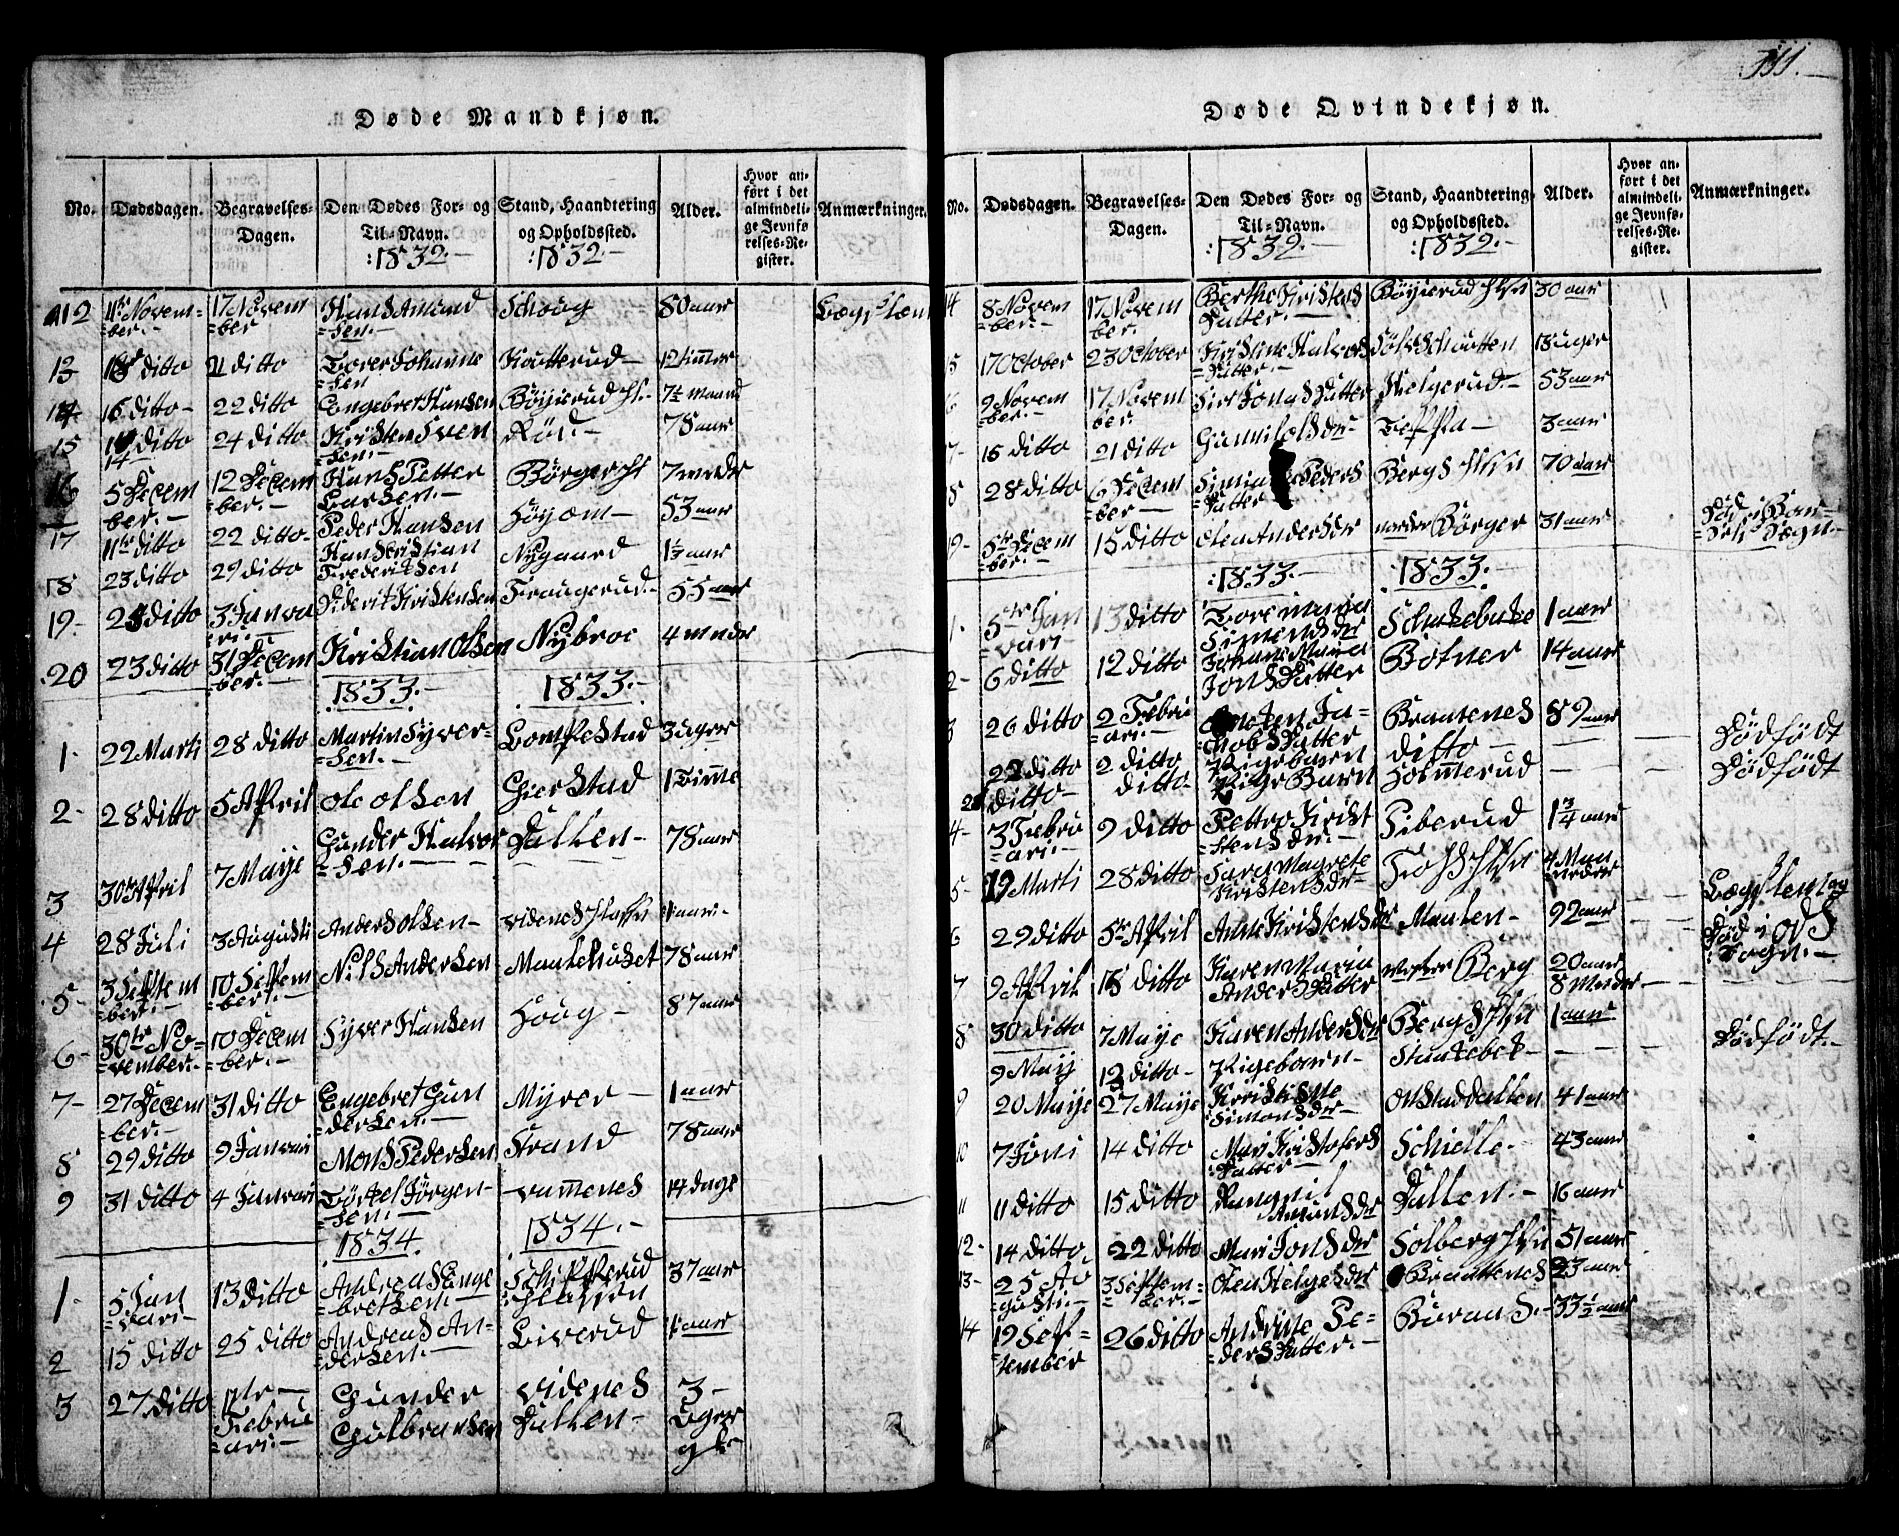 111.
Døde Mandkjøn.
No. Dødsdagen. Begravelses-Dagen. Den Dødes For- og Til-Navn. Stand, Haandtering og Opholdssted. Alder. Hvor anført i det almindelige Jevnførelses-Register. Anmærkninger.
:1832.- :1832-
12 11te November.- 17 November Hans Amundsen.- Schoug 80 aar
13 18 ditto 21 ditto Torer Johannesen 12 timer
14 16 ditto- 22 ditto Engebret Hansen Böyierud 7½ maand
15 14 ditto 24 ditto Kristen Svensen.- Röd.- 78 aar
16 5 December.- 12 December.- Hans Petter Larsen.- Börger 7 mrdr
17 11te ditto 22 ditto- Peder Hansen Höyom- 53 aar
18 23 ditto 29 ditto Hans Kristian Frederiksen Nygaard 1½ aar
19.- 25 ditto 3 Januari Diderik Kristensen Fraugerud.- 55 aar
20 23 ditto 31 December.- Kristian Olsen Nybroe 4 mnder
.1833.- .1833.-
1. 22 Marti 28 ditto Martin Syversen.- Lompestad 3 uger
2- 28 ditto 5 April Ole Olsen Gierstad 1 Time
3 30te April 7 Maije Gunder Halvorsen.- Dallen- 78 aar
4 28 Juli 3 Augusti Anders Olsen- Videnes 1 aar.-
5- 3 September.- 10 September.- Nils Andersen Maalehuset 78 aar
6- 30te November.- 10 December.- Syver Hansen Houg- 87 aar
7- 27 December.- 31 ditto Engebret Gundersen.- Myrer- 1 aar
8 29 ditto 9 Januari Mons Pedersen Strand 78 aar
9 31 ditto 4 Januari Törkel Jörgensen.- Vammenes 14 dage
1834. 1534.-
1. 5 Januari- 13 ditto Andreas Engebretsen.- Schipperud 37 aar
2 15 ditto 25 ditto Andreas Andersen.- Liverud 1 aar
3 27 ditto Februari.- Gunder Gulbransen Videnes Dallen- 3- uger
Døde Qvindekjøn.
No. Dødsdagen. Begravelses-Dagen. Den Dødes For- og Til-Navn. Stand, Haandtering og Opholdssted. Alder. Hvor anført i det almindelige Jevnførelses-Register. Anmærkninger.
:1832.- :1832.-
14 8 November.- 17 November. Berthe Kristensdatter.- Böyierud 30 aar
15 17 October 23 October Kristine Halvorsdatter.- 13 uger
16 9 November.- 17 November. Siri Jonasdatter Helgerud.- 53 aar
17- 16 ditto 21 ditto Teppa- 3 aar
18 28 ditto 6 December- Pedersdatter Bergs 70 aar
19- 5te December.- 15 ditto Olea Andersdr nordre Börger 31 aar
:1833.- :1833.-
1. 5te Januari 13 ditto Tore Maria Simensdr 1 aar
2- 6 ditto 12 ditto Johane Maria Jonsdatter Botner 14 aar
3 26 ditto 2 Februari.- Jacobsdatter Braatenes 89 aar
22 ditto 2 ditto Pigebarn ditto- Dödfödt
ditto- ditto- Pige Barn Hommerud Dödfödt
4- 3 Februari.- 9 ditto Pettro Kristensdr.- Fiberud 1¾ aar
5- 19 Marti 28 ditto Sara Magrete Kristensdr- 4 Maaneder
6 29 ditto 5te April Anne Kristensdr Maalen- 92 aar
7 9 April 18 ditto Karen Maria Andersdatter Vestre Berg 20 aar 8 Mrder
8 30 ditto 7 Maije Karen Andersdr Bergs 1 aar
9 Maij 12 ditto- Pigebarn- Dödfödt.-
9 20 Maije 27 Maije Kristine Simonsdr- Olstaddallen 41 aar
10 7 Joni 14 ditto Mari Kristofersdatter- Schielle- 43 aar
11 11 ditto 15 ditto Dallen.- 16 aar
12- 14 ditto. 22 ditto Mari Jonsdr Solberg 51 aar
13- 25 Augusti.- 3 September.- Olea Helgesdr Braatenes 23 aar
14 19 September 26 ditto Andrine Pedersdatter.- Buraas.- 33½ aar